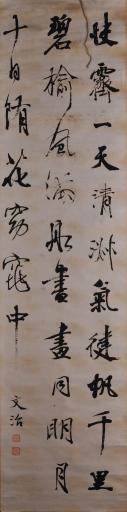 快霽一天清淑氣健帆千里
碧榆風滿船書畫同明月
十日隋花窈窕中
文治